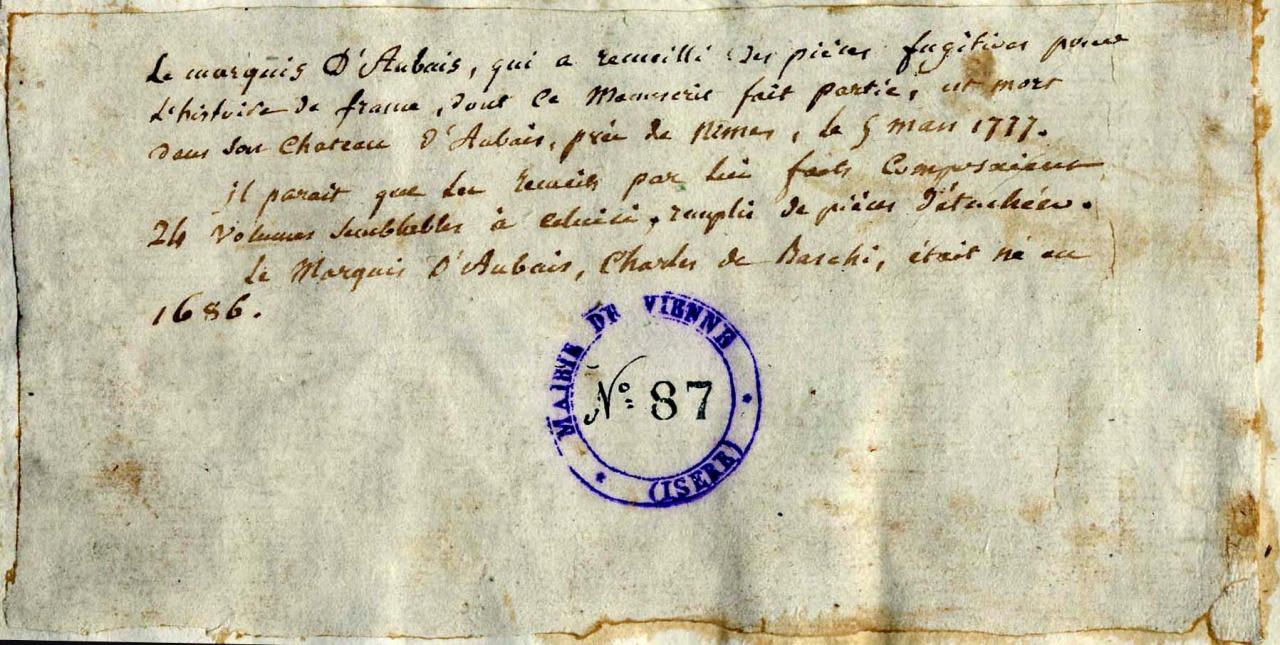 Le marquis D'Aubais, qui a recueilli des pièces fugitives pour
L'histoire de france, dont ce Manuscrit fait partie, est mort
dans son Chateau d'Aubais, près de Nîmes, le 5 mars 1777.
il parait que les recueils par lui faits Composaient
24 Volumes semblables à celui-ci, remplis de pièces détachées.
Le Marquis d'Aubais, Charles de Baschi, était né en
1686.
MAIRIE DE VIENNE
N° 87
(ISERE)